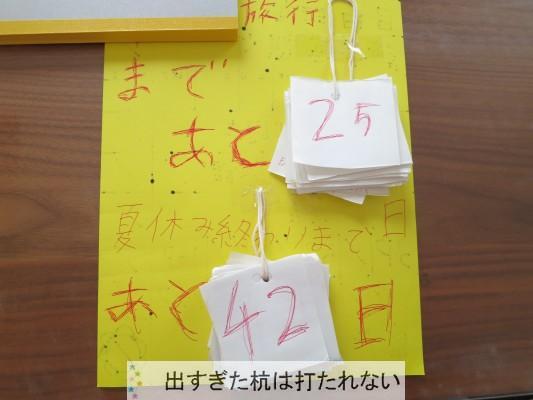 旅行
まで
あと 25
日
夏休み終わりまで
あと 42 日
出すぎた杭は打たれない